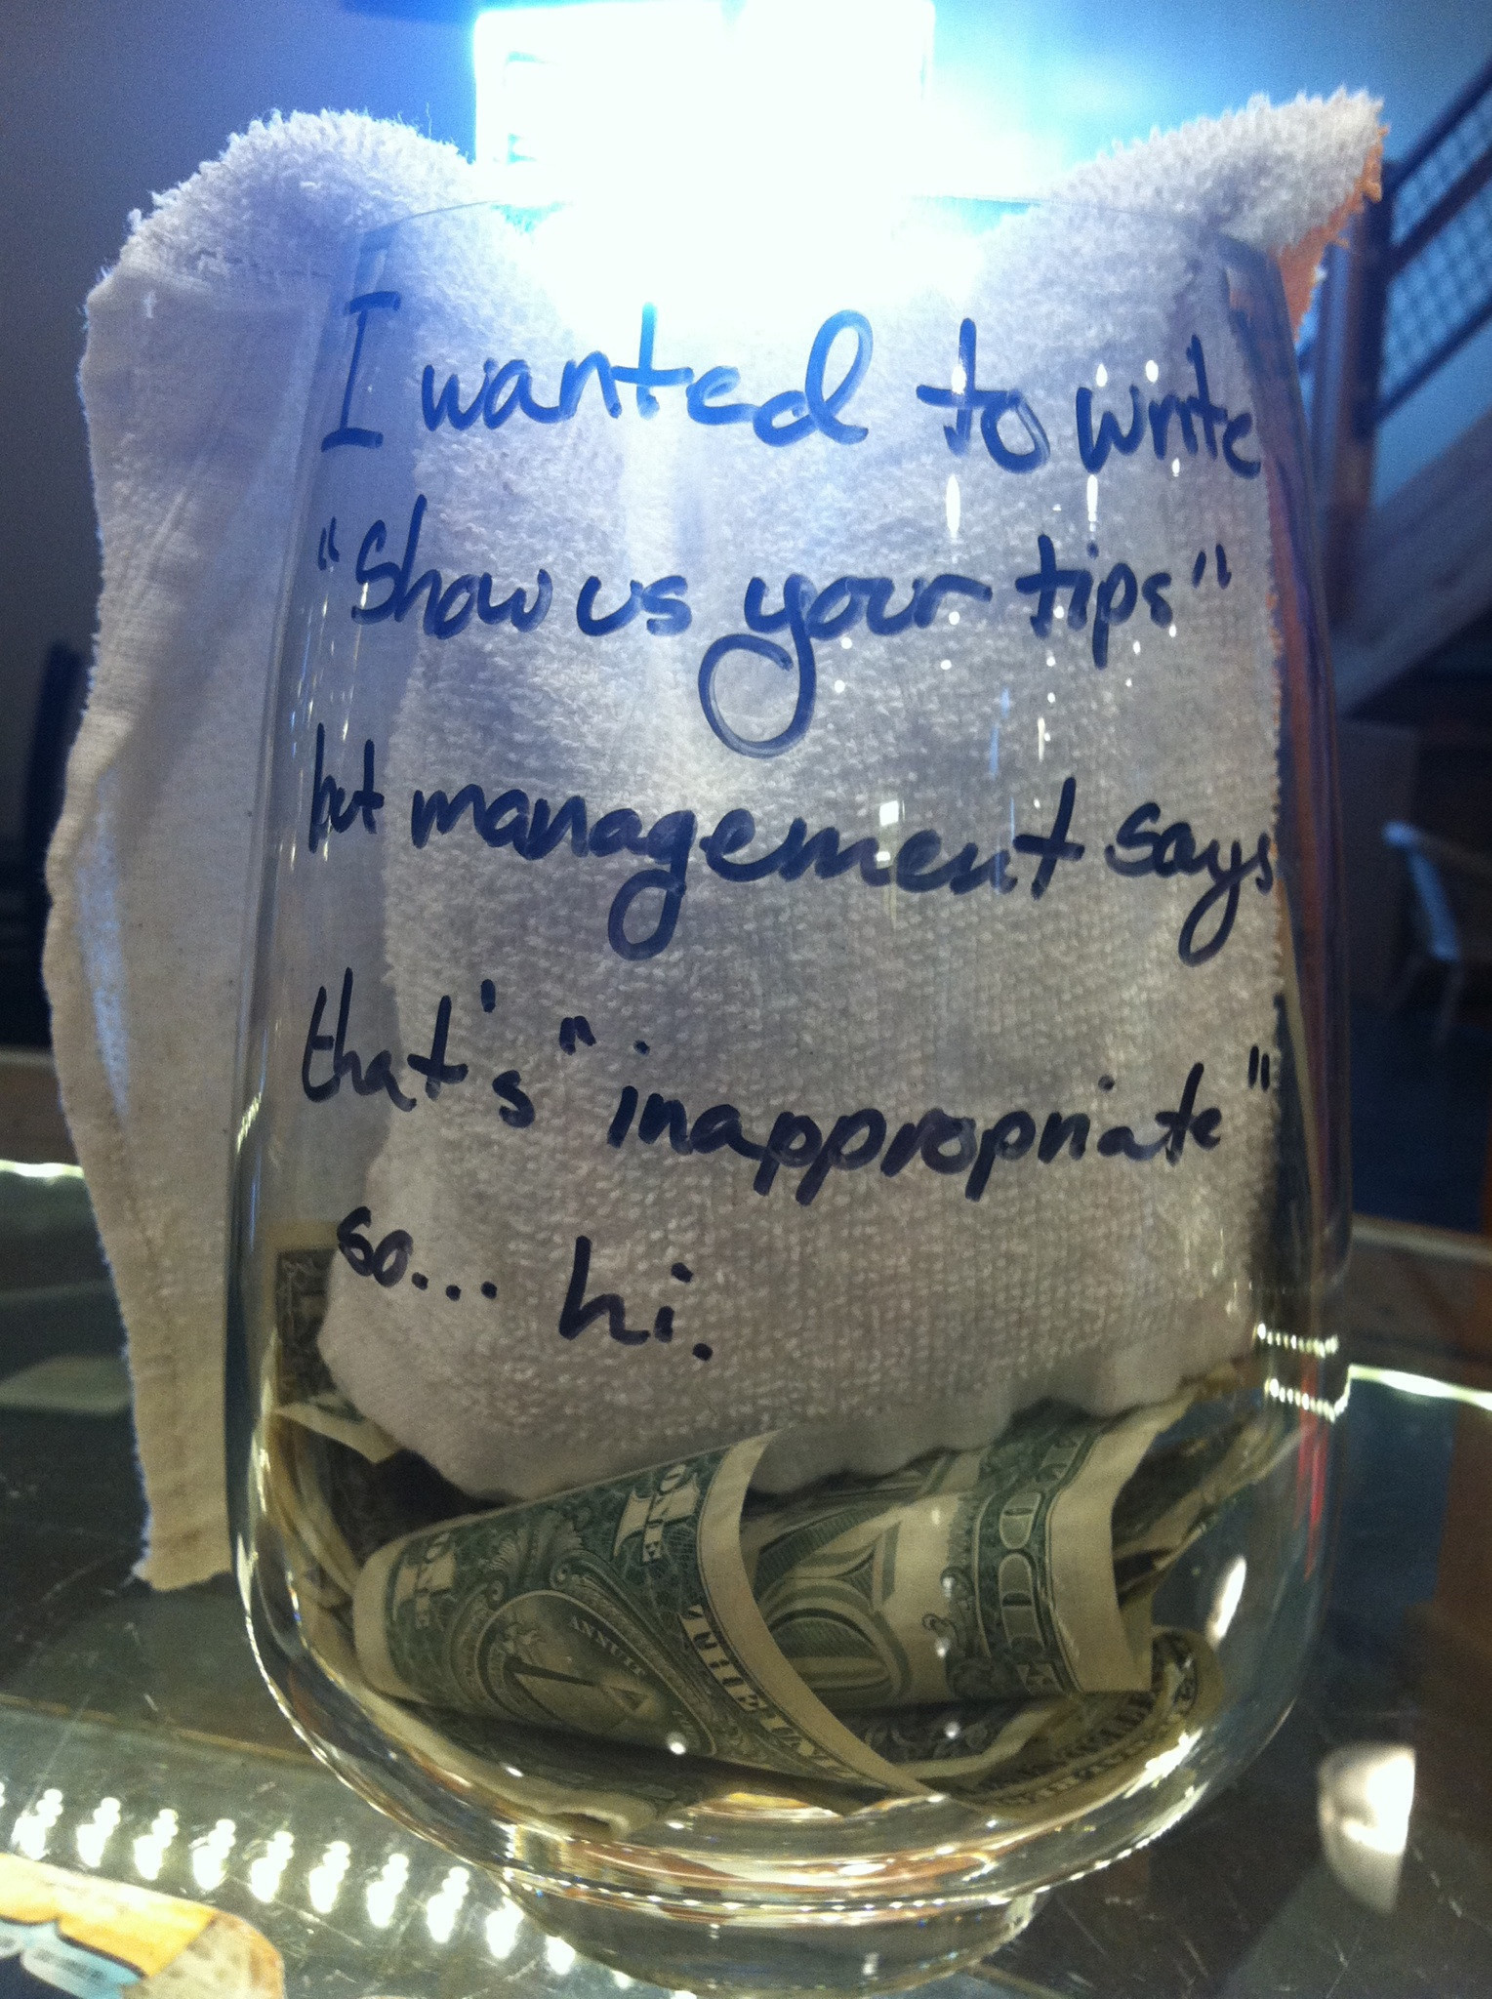 I wanted to write
"Show us your tips"
but management says
that's "inappropriate"
so... hi.
ONE
1
ONE
ANNUIT
THE UN